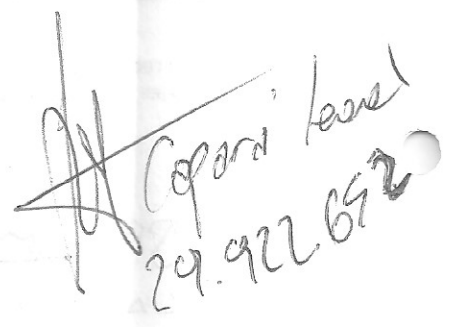 Coponi Leonel
29.922.652